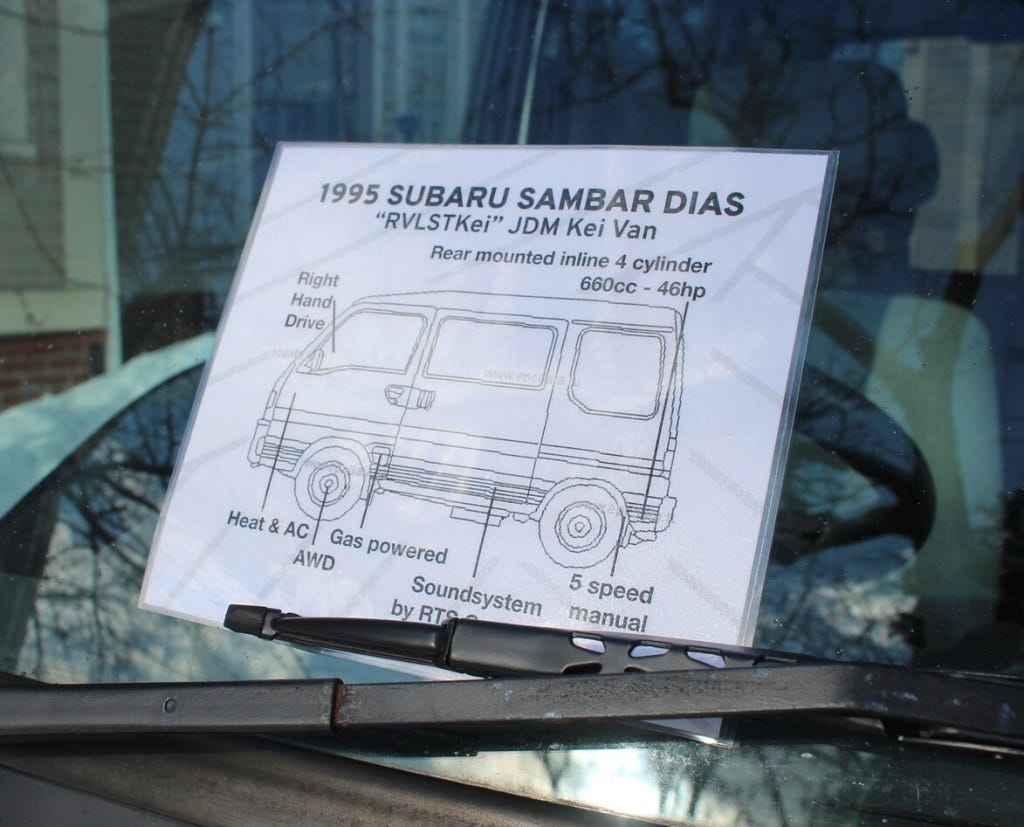 1995 SUBARU SAMBAR DIAS
"RVLSTKei" JDM Kei Van
Rear mounted inline 4 cylinder
660cc - 46hp
Right
Hand
Drive
Heat & AC
AWD
Gas powered
Soundsystem
by RTS
5 speed
manual